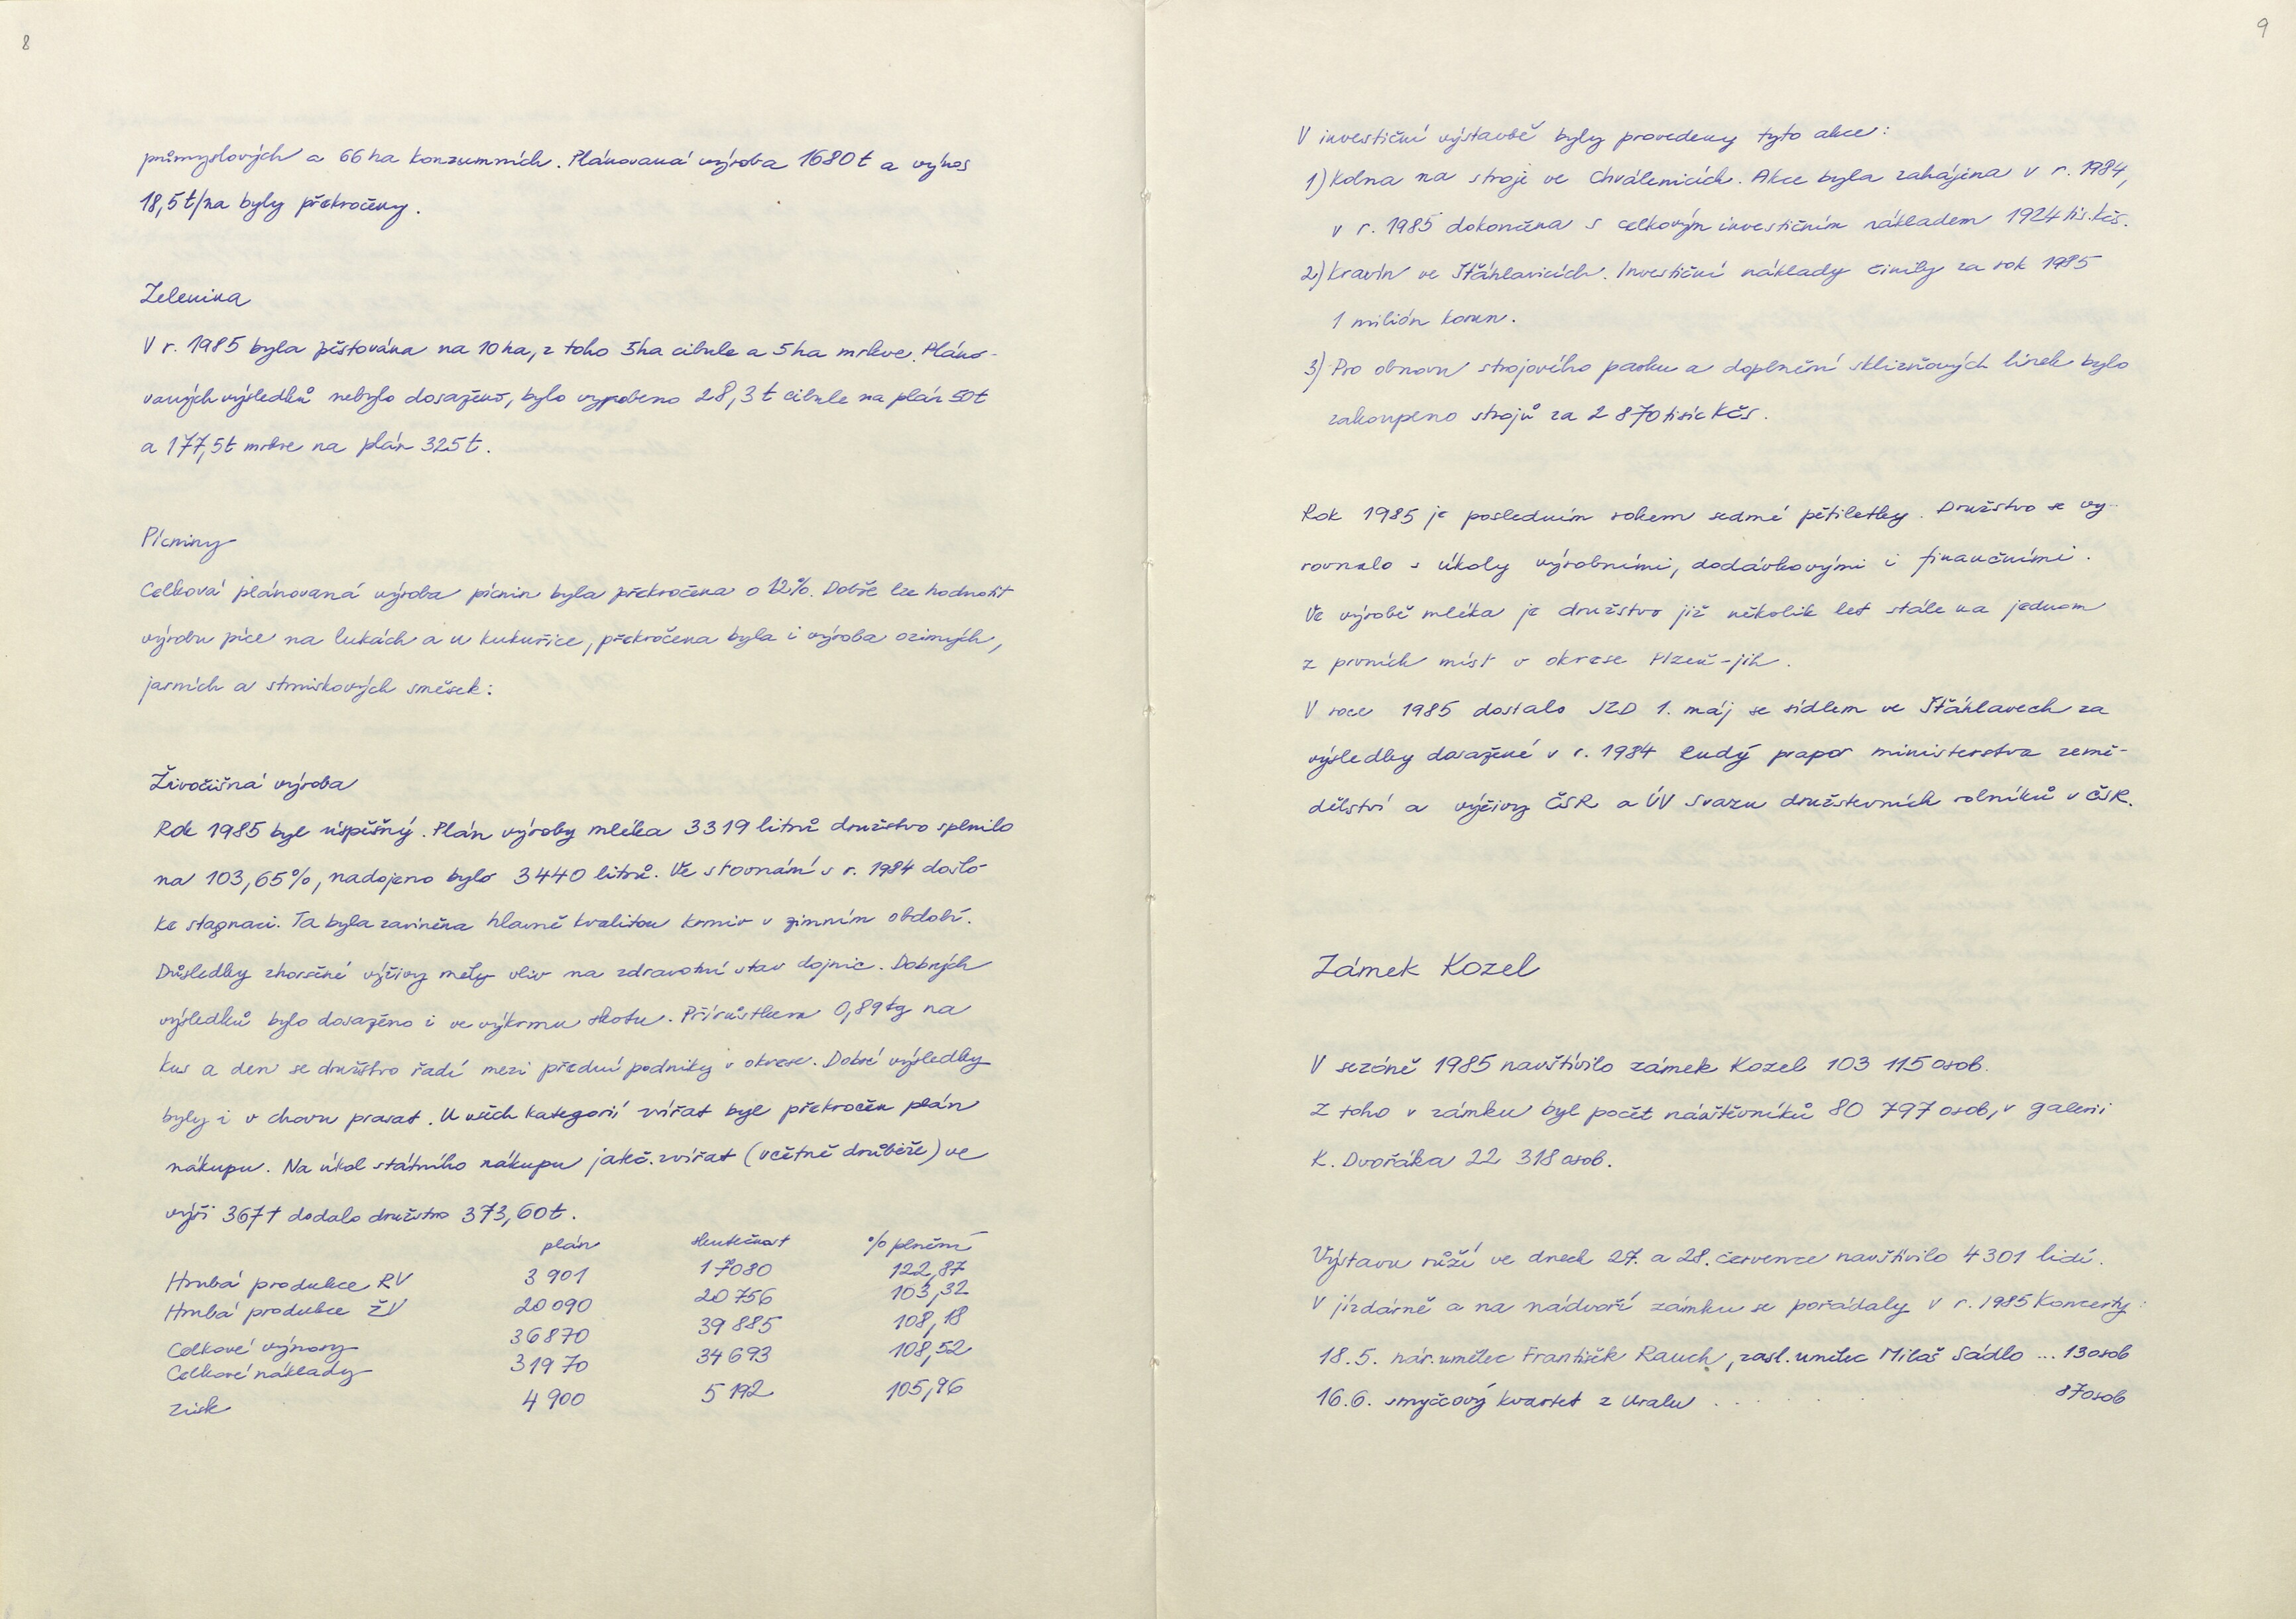 8
průmyslových a 66 ha konzumních. Plánovaná výroba 1680 t a výnos
18,5 t/ha byly překročeny.
Zelenina
V r. 1985 byla pěstována na 10 ha, z toho 5 ha cibule a 5 ha mrkve. Pláno-
vaných výsledků nebylo dosaženo, bylo vyrobeno 28,3 t cibule na plán 50 t
a 177,5 t mrkve na plán 325 t.
Pícniny
Celková plánovaná výroba pícnin byla překročena o 12%. Dobře lze hodnotit
výrobu píce na lukách a u kukuřice, překročena byla i výroba ozimých,
jarních a strniskových směsek:
Živočišná výroba
Rok 1985 byl úspěšný. Plán výroby mléka 3319 litrů družstvo splnilo
na 103,65%, nadojeno bylo 3440 litrů. Ve srovnání s r. 1984 došlo
ke stagnaci. Ta byla zaviněna hlavně kvalitou krmiv v zimním období.
Důsledky zhoršené výživy měly vliv na zdravotní stav dojnic. Dobrých
výsledků bylo dosaženo i ve výkrmu skotu. Přírůstkem 0,89 kg na
kus a den se družstvo řadí mezi přední podniky v okrese. Dobré výsledky
byly i v chovu prasat. U všech kategorií zvířat byl překročen plán
nákupu. Na úkol státního nákupu jateč. zvířat (včetně drůbeže) ve
výši 367 t dodalo družstvo 373,60 t.
plán skutečnost % plnění
Hrubá produkce RV 3 901 17080 122,87
Hrubá produkce ŽV 20 090 20 756 103,32
Celkové výnosy 36870 39 885 108,18
Celkové náklady 31970 34 693 108,52
zisk 4 900 5 192 105,96
9
V investiční výstavbě byly provedeny tyto akce:
1) Kolna na stroje ve Chválenicích. Akce byla zahájena v r. 1984,
v r. 1985 dokončena s celkovým investičním nákladem 1924 tis. Kčs.
2) Kravín ve Šťáhlavicích. Investiční náklady činily za rok 1985
1 milión korun.
3) Pro obnovu strojového parku a doplnění sklizňových linek bylo
zakoupeno strojů za 2 870 tisíc Kčs.
Rok 1985 je posledním rokem sedmé pětiletky. Družstvo se vy-
rovnalo s úkoly výrobními, dodávkovými i finančními.
Ve výrobě mléka je družstvo již několik let stále na jednom
z prvních míst v okrese Plzeň-jih.
V roce 1985 dostalo JZD 1. máj se sídlem ve Šťáhlavech za
výsledky dosažené v r. 1984 Rudý prapor ministerstva země-
dělství a výživy ČSR a ÚV Svazu družstevních rolníků v ČSR.
Zámek Kozel
V sezóně 1985 navštívilo zámek Kozel 103 115 osob.
Z toho v zámku byl počet návštěvníků 80 797 osob, v galerii
K. Dvořáka 22 318 osob.
Výstavu růží ve dnech 27. a 28. července navštívilo 4 301 lidí.
V jízdárně a na nádvoří zámku se pořádaly v r. 1985 koncerty:
18.5. nár. umělec František Rauch, zasl. umělec Miloš Sádlo ... 13 osob
16.6. smyčcový kvartet z Uralu . . . . 87 osob